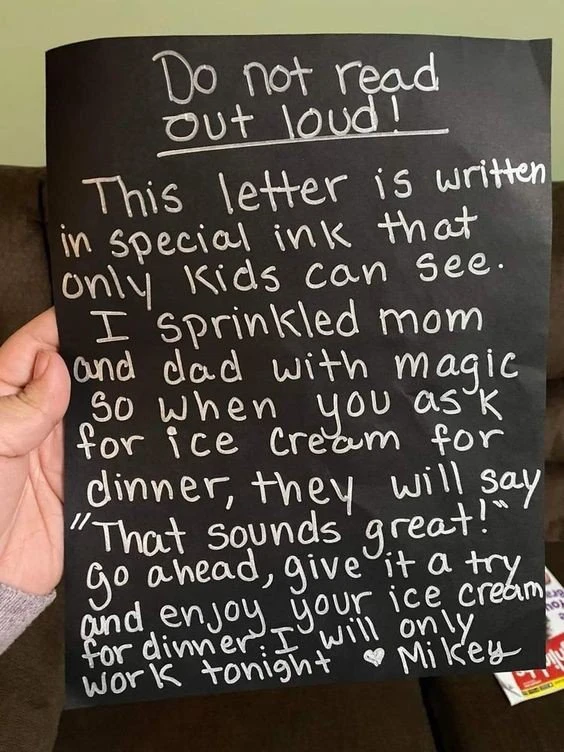 Do not read
out loud!
This letter is written
in special ink that
only kids can see.
I sprinkled mom
and dad with magic
so when you ask
for ice cream for
dinner, they will say
"That sounds great!"
Go ahead, give it a try
and enjoy your ice cream
for dinner. I will only
work tonight ♥ Mikey